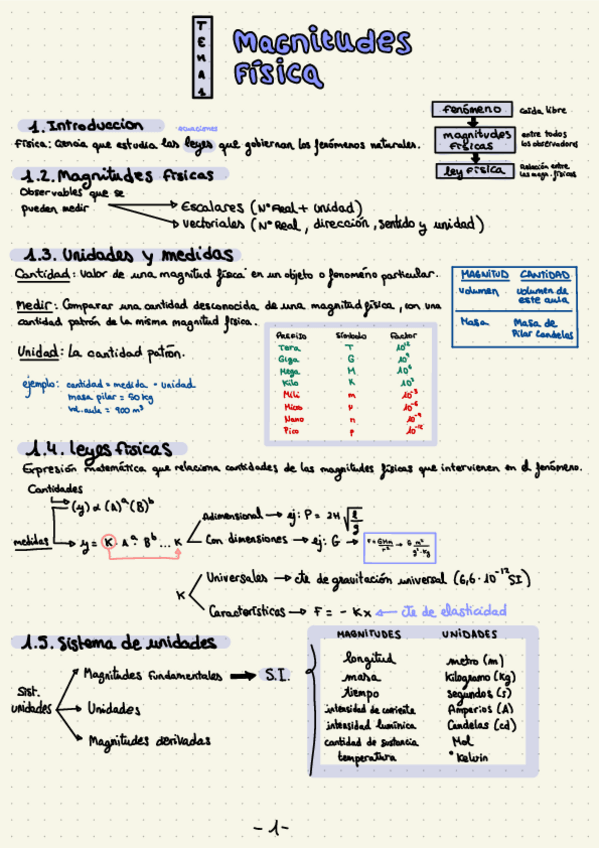 TEMA 1
Magnitudes
Física
1. Introduccion
ecuaciones
Física: Ciencia que estudia las leyes que gobiernan los fenómenos naturales.
fenómeno
Caída libre
magnitudes
físicas
entre todos
los observadores
ley física
Relación entre
las magn. físicas
1.2. Magnitudes físicas
Observables que se
pueden medir
Escalares (Nº Real + unidad)
Vectoriales (Nº Real, dirección, sentido y unidad)
1.3. Unidades y medidas
Cantidad: Valor de una magnitud física en un objeto o fenómeno particular.
Medir: Comparar una cantidad desconocida de una magnitud física, con una
cantidad patrón de la misma magnitud física.
Unidad: La cantidad patrón.
ejemplo: cantidad = medida · unidad
masa pilar = 50 kg
vol. aula = 900 m³
MAGNITUD CANTIDAD
Volumen Volumen de
este aula
Masa Masa de
Pilar Candelas
Prefijo Símbolo Factor
Tera T 10¹²
Giga G 10⁹
Mega M 10⁶
Kilo K 10³
Mili m 10⁻³
Micro μ 10⁻⁶
Nano n 10⁻⁹
Pico p 10⁻¹²
1.4. Leyes físicas
Expresión matemática que relaciona cantidades de las magnitudes físicas que intervienen en el fenómeno.
Cantidades
(y) α (A)ᵃ (B)ᵇ
medidas
y = K · Aᵃ · Bᵇ ... K
Adimensional → ej: P = 2π √(l/g)
Con dimensiones → ej: G →
K
Universales → cte de gravitación universal (6,6 · 10⁻¹² SI)
Características → F = - Kx ← cte de elasticidad
1.5. Sistema de unidades
Sist.
unidades
Magnitudes fundamentales → S.I.
Unidades
Magnitudes derivadas
MAGNITUDES UNIDADES
longitud metro (m)
masa Kilogramo (Kg)
tiempo segundos (s)
intensidad de corriente Amperios (A)
intensidad lumínica Candelas (cd)
cantidad de sustancia Mol
temperatura °Kelvin
-1-